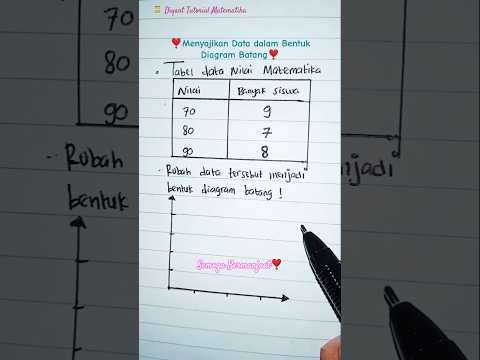 Dapat Tutorial Matematika
Menyajikan Data dalam Bentuk
Diagram Batang
Tabel data Nilai Matematika
Nilai Banyak siswa
70 9
80 7
90 8
Rubah data tersebut menjadi
bentuk diagram batang !
Semoga Bermanfaat
70
80
90
Rubah
bentuk